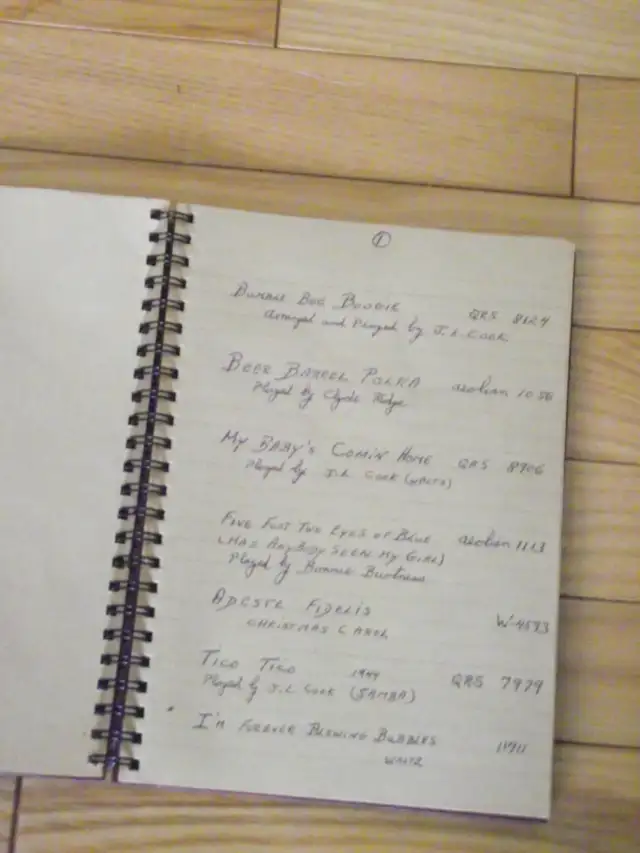 1
Bumble Bee Boogie QRS 8124
Arranged and Played by J.L. Cook
Beer Barrel Polka aeolian 1056
Played by Clyde Ridge
My Baby's Comin Home QRS 8906
Played by J.L. Cook (Waltz)
Five Foot Two Eyes of Blue aeolian 1113
(Has Anybody Seen My Girl)
Played by Bonnie Burtness
Adeste Fidelis W-4593
Christmas Carol
Tico Tico 1944 QRS 7979
Played by J.L. Cook (Samba)
I'm Forever Blowing Bubbles
Waltz